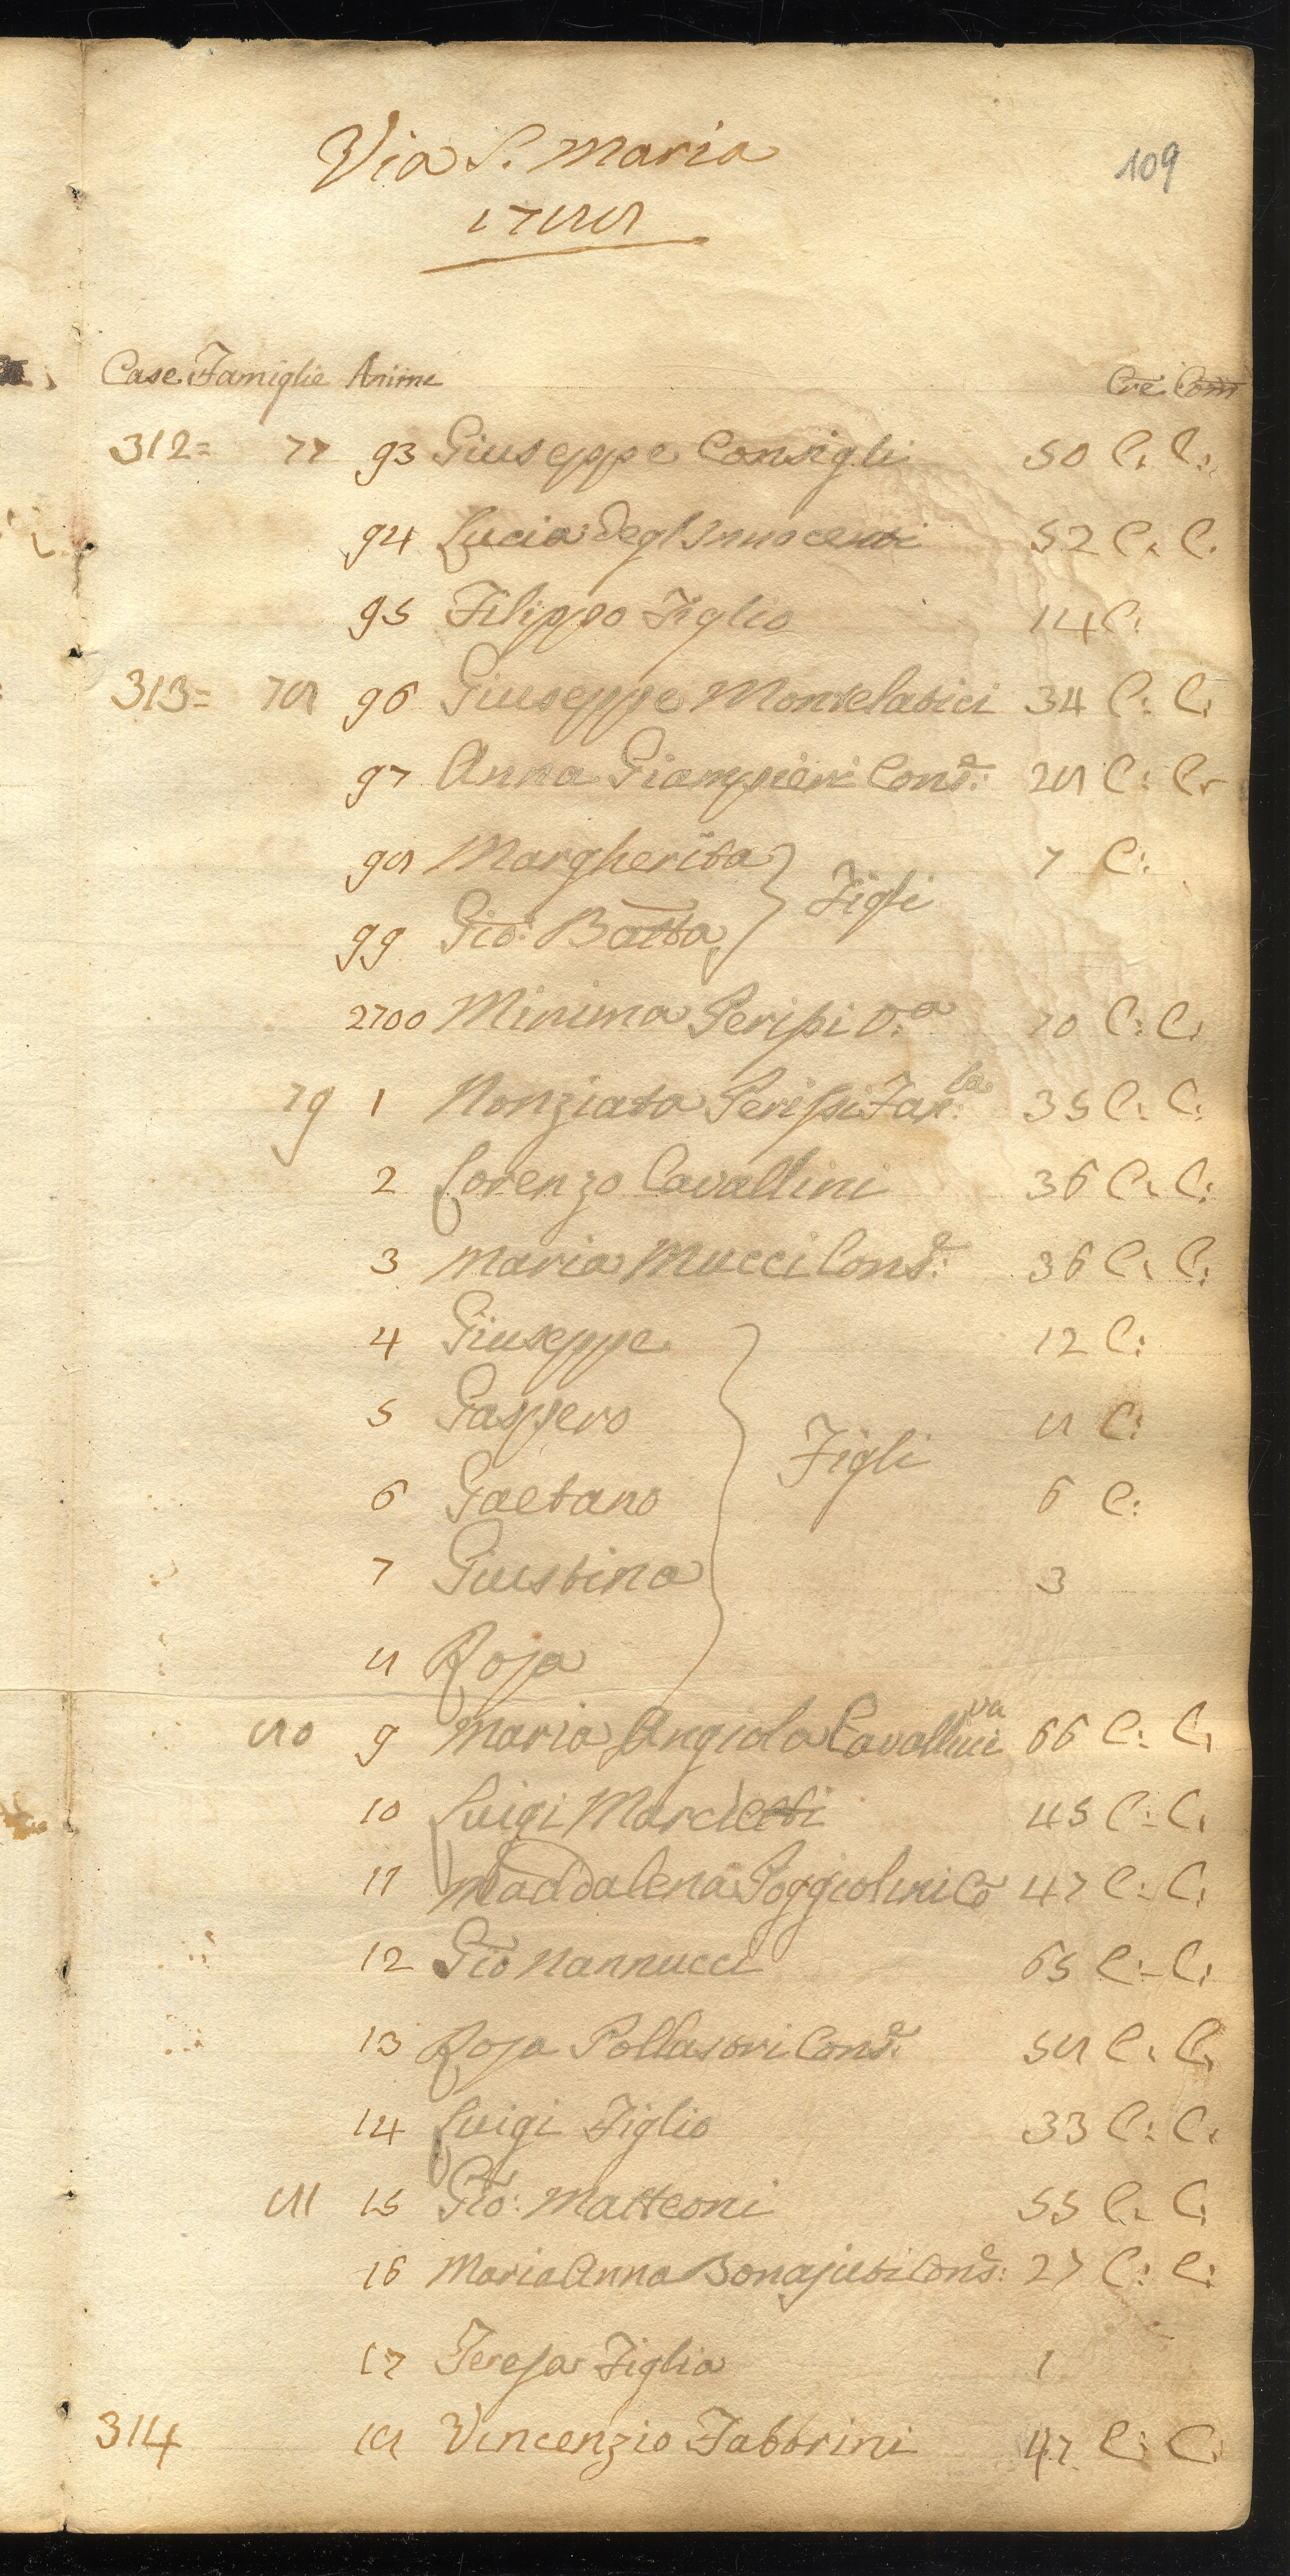 109
Via S. Maria
1788
Case Famiglie Anime Cre Com
312= 77 93 Giuseppe Consigli 50 C. C:
94 Lucia Degl'Innocenti 52 C. C.
95 Filippo Figlio 14 C:
313= 78 96 Giuseppe Montelatici 34 C: C:
97 Anna Giampieri Cons.e: 28 C: C:
98 Margherita 7 C:
Figli
99 Gio: Batta
2700 Minima Perissi V.a 70 C: C:
79 1 Nonziata Perissi 35 C: C:
2 Lorenzo Cavallini 36 C. C:
3 Maria Mucci Cons.e: 36 C. C:
4 Giuseppe 12 C:
5 Gaspero 8 C:
Figli
6 Gaetano 6 C:
7 Giustina 3
8 Rosa
80 9 Maria Angiola Cavallini va 66 C: C:
10 Luigi 45 C: C:
11 Maddalena Poggiolini Co 47 C: C:
12 Gio Nannucci 65 C: C:
13 Rosa Pollastri Cons.e: 58 C. C:
14 Luigi Figlio 33 C: C:
81 15 Gio: Matteoni 55 C. C:
16 Maria Anna Bonajuti Cons.e: 27 C: C:
17 Teresa Figlia 1
314 18 Vincenzio Fabbrini 47 C: C: